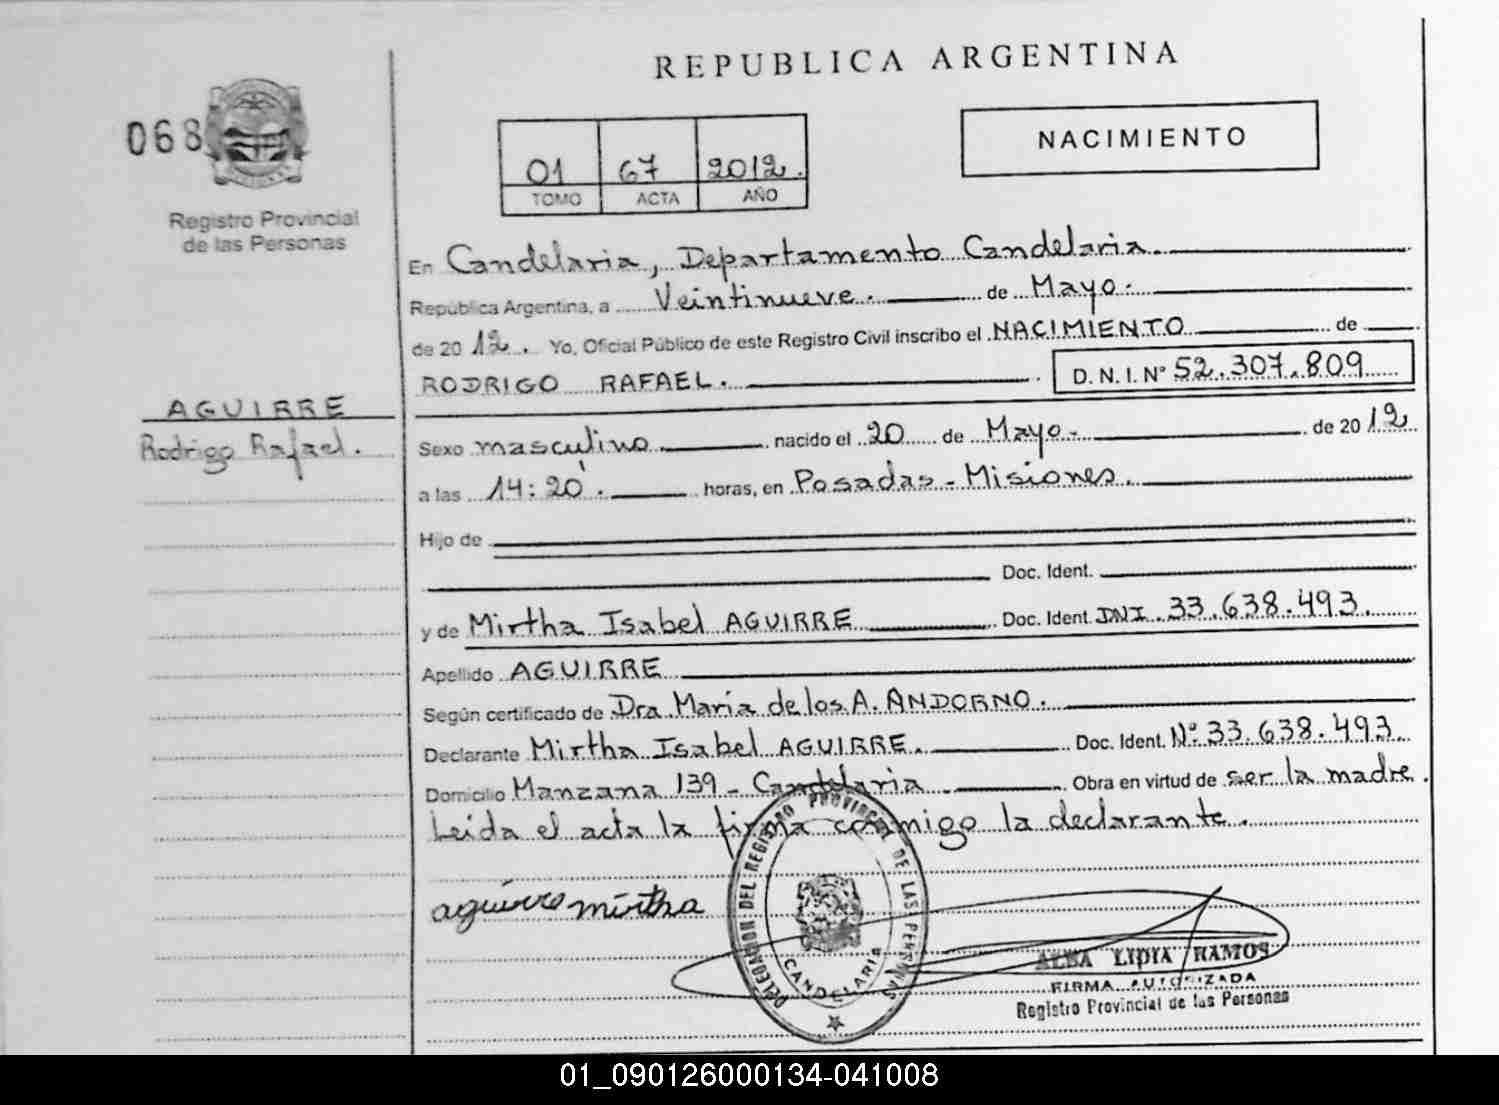 REPUBLICA ARGENTINA
068
Registro Provincial
de las Personas
01 67 2012.
TOMO ACTA AÑO
NACIMIENTO
En Candelaria, Departamento Candelaria.
República Argentina, a Veintinueve. de Mayo.
de 20 12. Yo, Oficial Público de este Registro Civil inscribo el NACIMIENTO de
RODRIGO RAFAEL. D. N. I. N° 52.307.809
AGUIRRE
Rodrigo Rafael.
Sexo masculino nacido el 20 de Mayo. de 2012
a las 14:20'. horas, en Posadas - Misiones.
Hijo de
Doc. Ident.
y de Mirtha Isabel AGUIRRE Doc. Ident. DNI. 33.638.493.
Apellido AGUIRRE
Según certificado de Dra. María de los A. ANDORNO.
Declarante Mirtha Isabel AGUIRRE. Doc. Ident. N° 33.638.493
Domicilio Manzana 139 - Candelaria. Obra en virtud de ser la madre.
Leida el acta la firma conmigo la declarante.
aguirre mirtha
DELEGACION DEL REGISTRO PROVINCIAL DE LAS PERSONAS
CANDELARIA
ALBA LIDIA RAMOS
FIRMA AUTORIZADA
Registro Provincial de las Personas
01_090126000134-041008